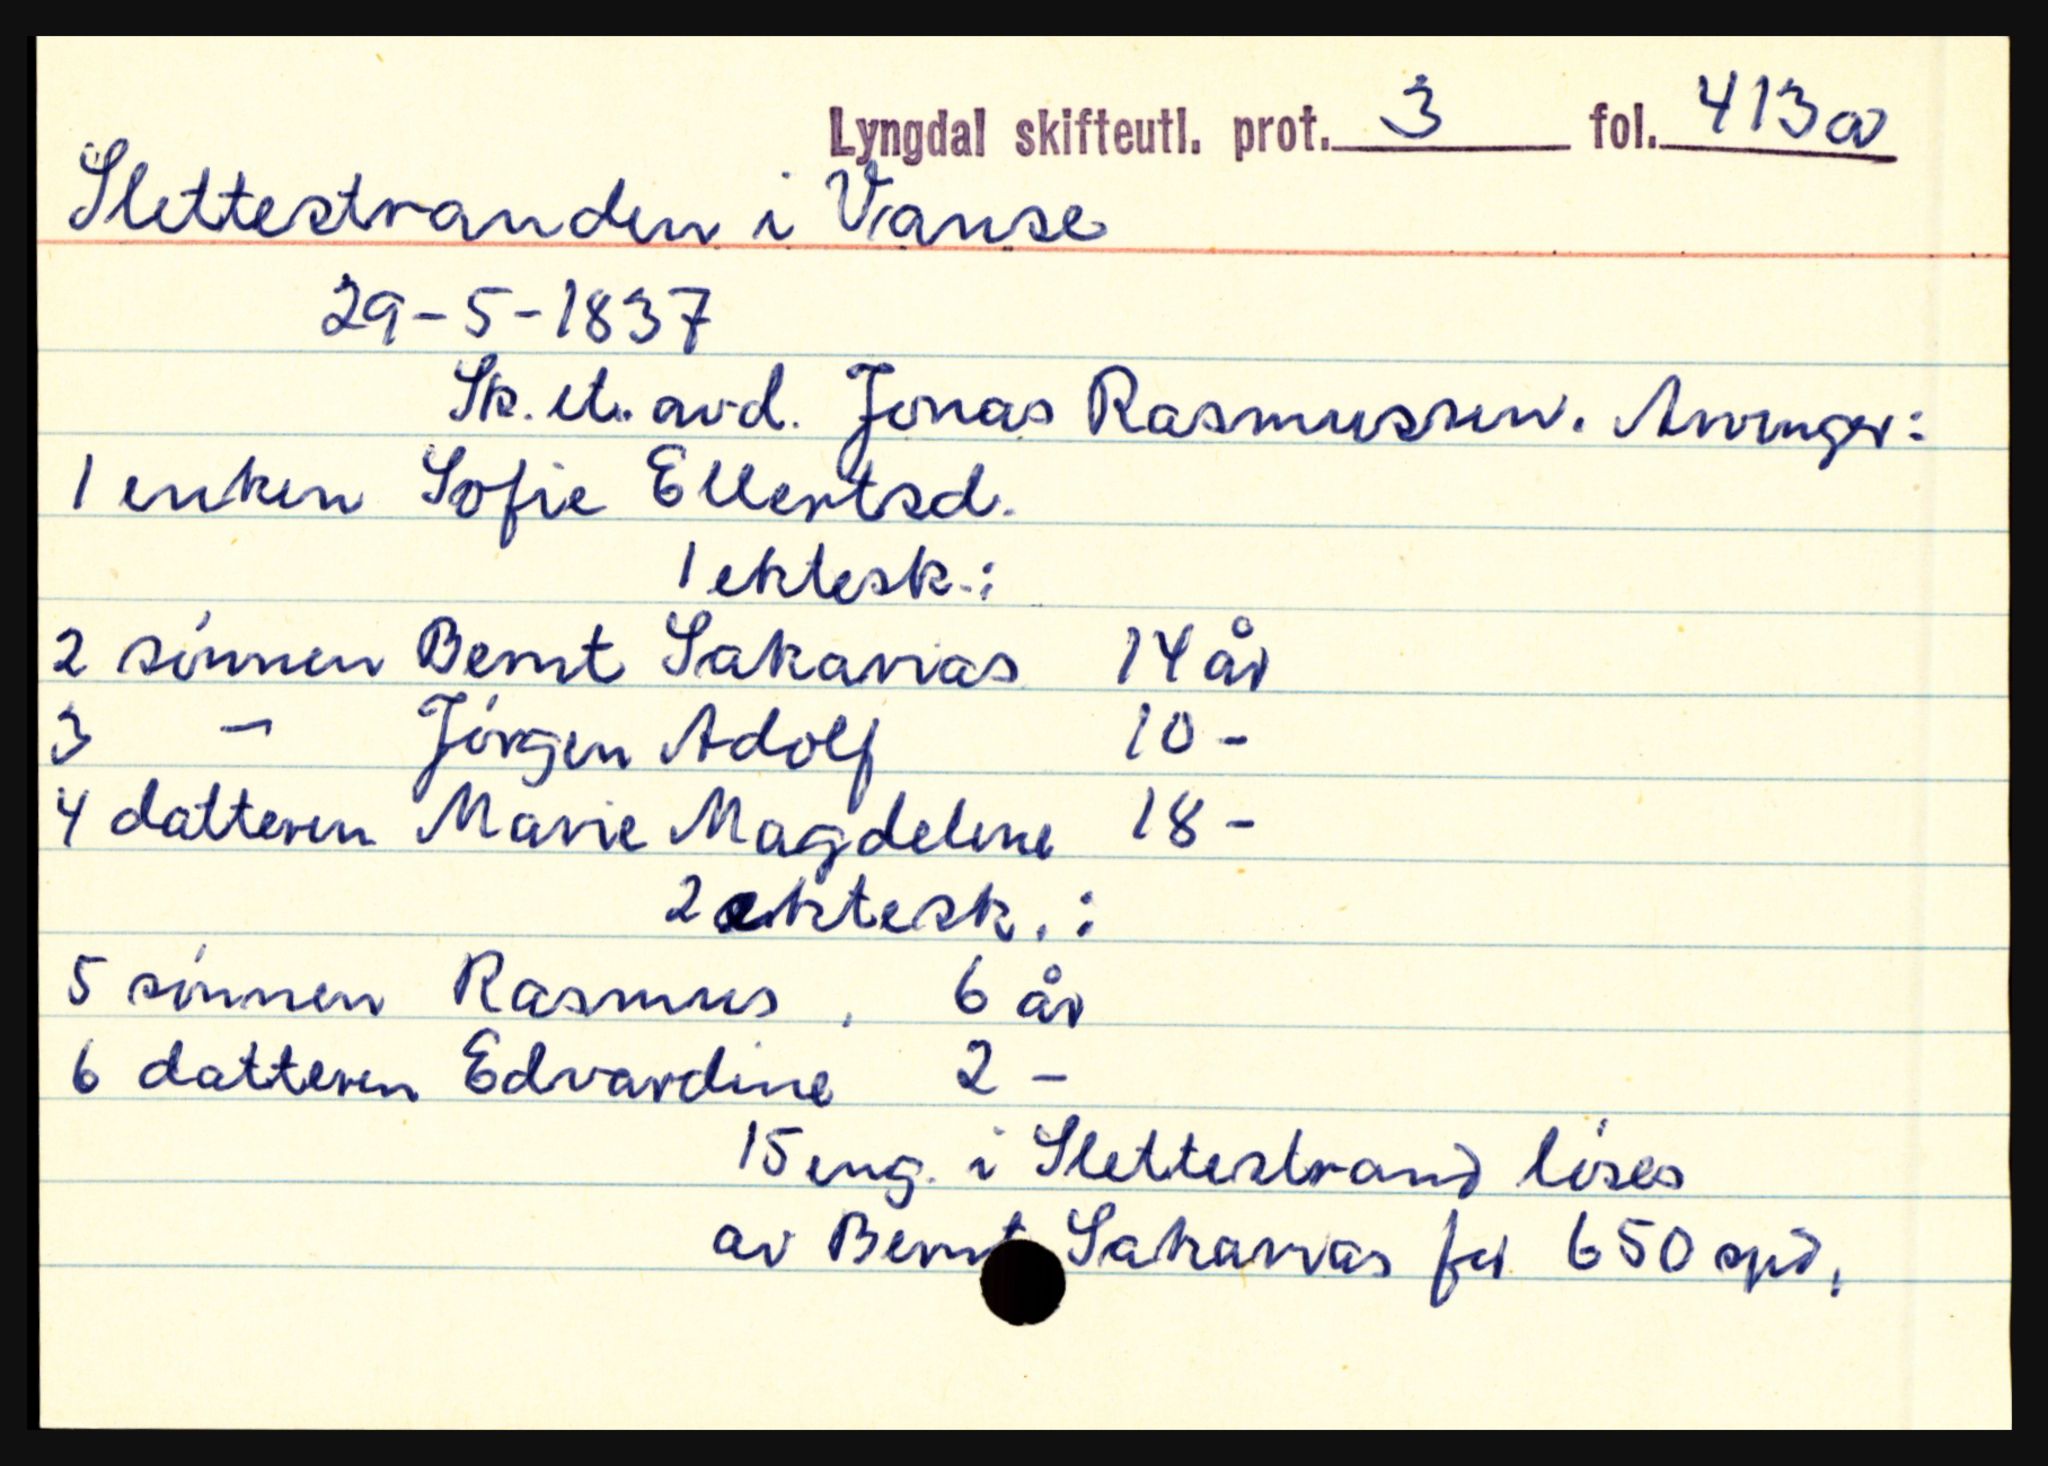 Lyngdal skifteutl. prot. 3 fol. 413a
Slettestranden i Vanse
29-5-1837
Sk. et. avd. Jonas Rasmussen. Arvinger:
1 enken Sofie Ellertsd.
1 ektesk.:
2 sönnen Bernt Sakarias 14 år
3 - Jörgen Adolf 10 -
4 datteren Marie Magdelene 18 -
2 ektesk.:
5 sönnen Rasmus, 6 år
6 datteren Edvardine 2 -
15 eng. i Slettestrand löses
av Bernt Sakarias for 650 spd.